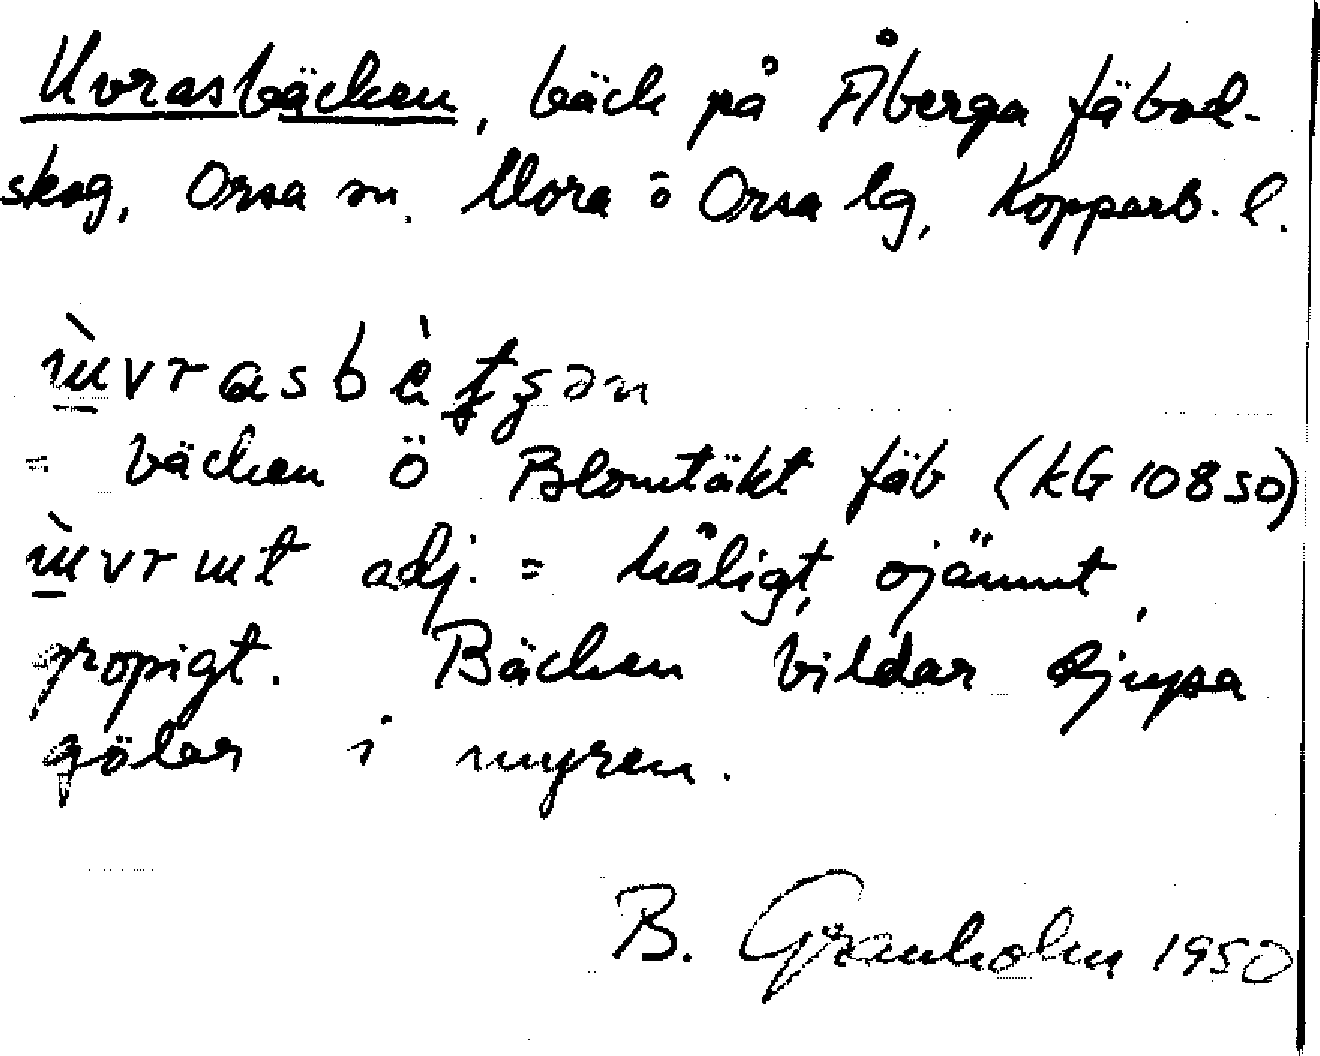 Uvrasbäcken, bäck på Åberga fäbod-
skog, Orsa sn. Mora o Orsa lg, Kopparb. l.
= bäcken ö Blomtäkt fäb (kG 10850)
adj. = håligt, ojämnt,
gropigt. Bäcken bildar djupa
gölar i myren.
B. Granholm 1950